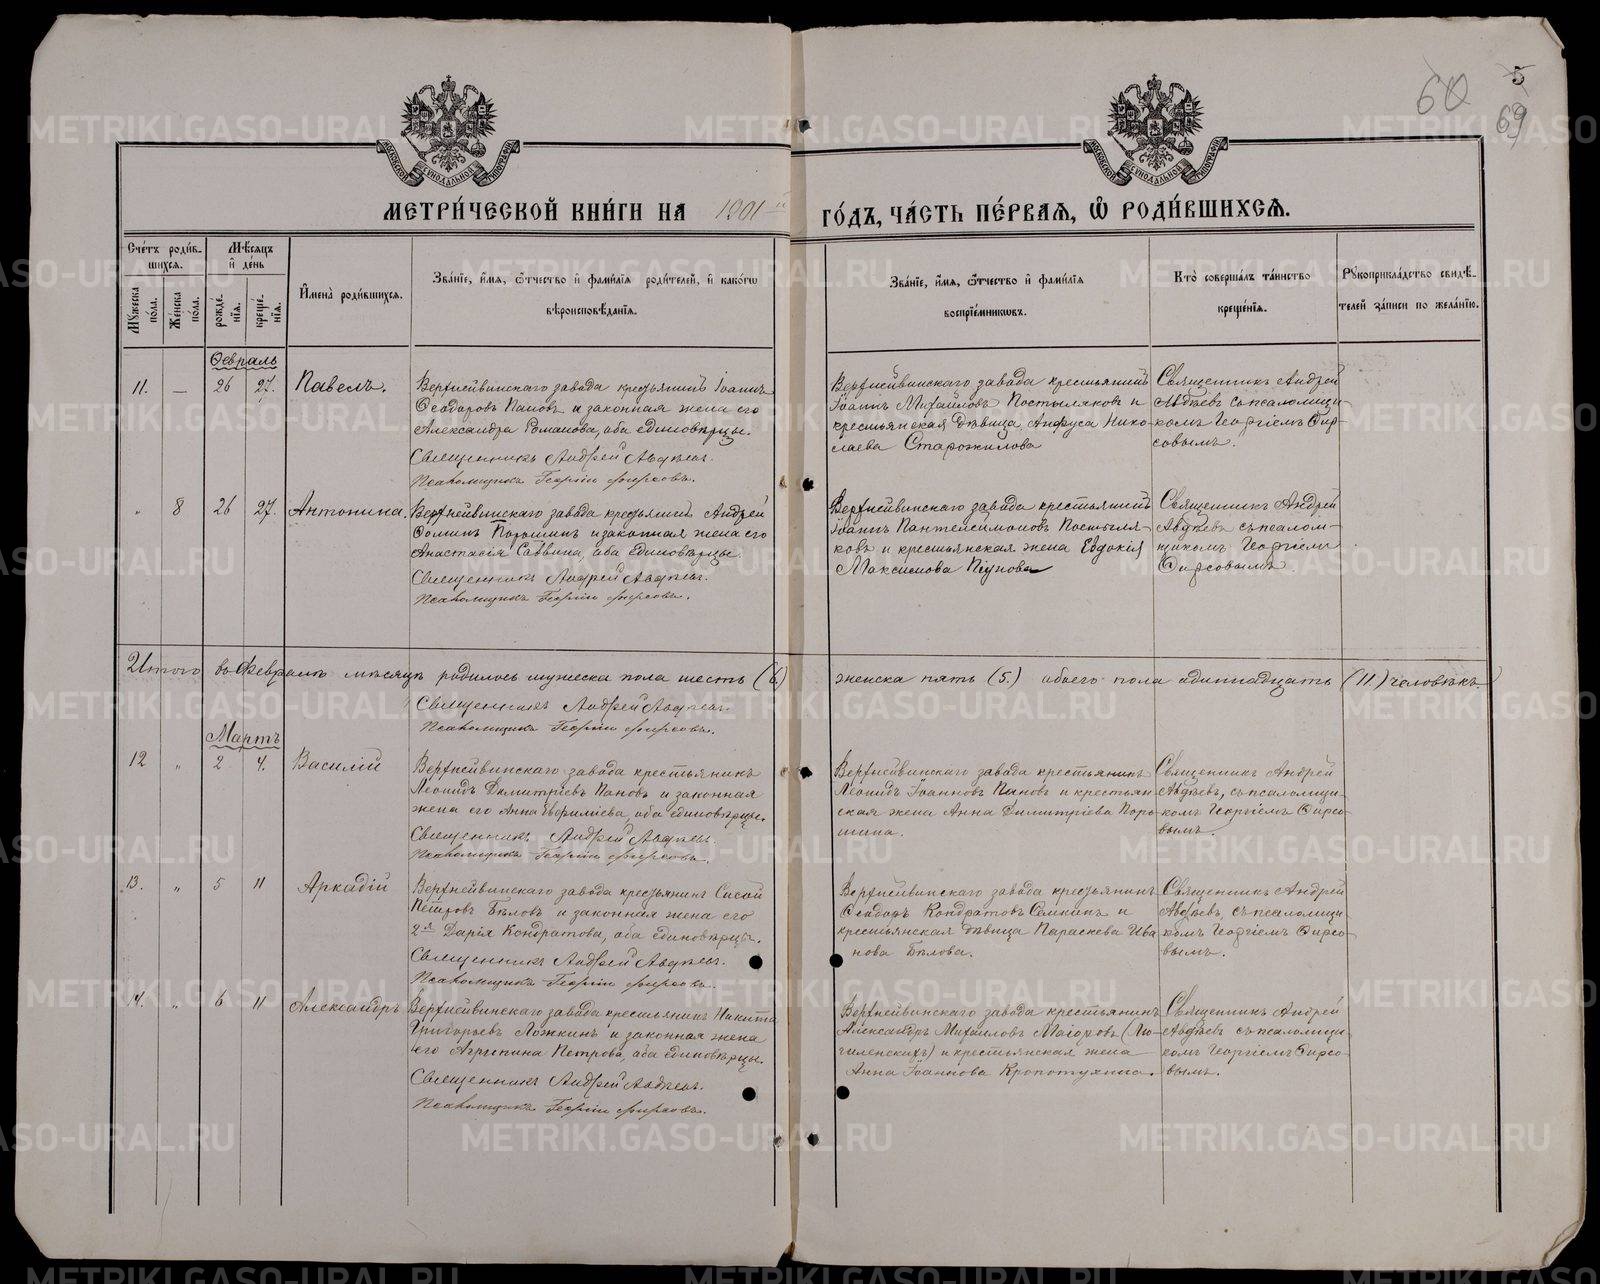 60
5
69
МОСКОВСКОЙ СѴНОДАЛЬНОЙ ТИПОГРАФІИ
МОСКОВСКОЙ СѴНОДАЛЬНОЙ ТИПОГРАФІИ
МЕТРИ́ЧЕСКОЙ КНИ́ГИ НА 1901 й ГО́ДЪ, ЧА́СТЬ ПЕ́РВАЯ, Ѽ РОДИ́ВШИХСЯ.
Сче́тъ роди́в-
шихся.
Мꙋжеска по́ла.
Же́нска по́ла.
Мѣ́сяцъ
и҆ де́нь
рожде́нїя.
креще́нїя.
И҆мена̀ роди́вшихся.
Зва́нїе, и҆́мя, ѻ҆́тчество и҆ фами́лїя роди́телей, и҆ како́гѡ
вѣроисповѣ́данїя.
Зва́нїе, и҆́мя, ѻ҆́тчество и҆ фами́лїя
воспрїе́мникѡвъ.
Кто̀ соверша́лъ та́инство
креще́нїя.
Рꙋкоприкла́дство свидѣ́-
телей за́писи по жела́нїю.
Февраль
11. — 26 27. Павелъ.
Верхнейвинскаго завода крестьянинъ Іоаннъ
Ѳеодоровъ Пановъ и законная жена его
Александра Романова, оба единовѣрцы.
Священникъ Андрей Авдѣевъ.
Псаломщикъ Георгій Фирсовъ.
Верхнейвинскаго завода крестьянинъ
Іоаннъ Михайловъ Постыляковъ и
крестьянская дѣвица Анфуса Нико-
лаева Старожилова
Священникъ Андрей
Авдѣевъ съ псаломщи-
комъ Георгіемъ Фир-
совымъ.
" 8 26 27. Антонина.
Верхнейвинскаго завода крестьянинъ Андрей
Ѳоминъ Порошинъ и законная жена его
Анастасія Саввина, оба единовѣрцы
Священникъ Андрей Авдѣевъ.
Псаломщикъ Георгій Фирсовъ.
Верхнейвинскаго завода крестьянинъ
Іоаннъ Пантелеимоновъ Постыля-
ковъ и крестьянская жена Евдокія
Максимова Пѣунова
Священникъ Андрей
Авдѣевъ съ псалом-
щикомъ Георгіемъ
Фирсовымъ.
Итого въ Февралѣ мѣсяцѣ родилось мужеска пола шесть (6.) женска пять (5.) обоего пола одиннадцать (11.) человѣкъ.
Священникъ Андрей Авдѣевъ.
Псаломщикъ Георгій Фирсовъ.
Мартъ
12 " 2 4. Василій
Верхнейвинскаго завода крестьянинъ
Леонидъ Димитріевъ Пановъ и законная
жена его Анна Евфиліева, оба единовѣрцы.
Священникъ Андрей Авдѣевъ.
Псаломщикъ Георгій Фирсовъ.
Верхнейвинскаго завода крестьянинъ
Леонидъ Іоанновъ Пановъ и крестьян-
ская жена Анна Димитріева Поро-
шина.
Священникъ Андрей
Авдѣевъ, съ псаломщи-
комъ Георгіемъ Фирсо-
вымъ.
13. " 5 11 Аркадій
Верхнейвинскаго завода крестьянинъ Сисой
Петровъ Бѣловъ и законная жена его
2я Дарія Кондратова, оба единовѣрцы.
Священникъ Андрей Авдѣевъ.
Псаломщикъ Георгій Фирсовъ.
Верхнейвинскаго завода крестьянинъ
Ѳеодоръ Кондратовъ Семкинъ и
крестьянская дѣвица Параскева Ива
нова Бѣлова.
Священникъ Андрей
Авдѣевъ, съ псаломщи-
комъ Георгіемъ Фирсо-
вымъ.
14. " 6 11 Александръ
Верхнейвинскаго завода крестьянинъ Никита
Григорьевъ Ложкинъ и законная жена
его Агрипина Петрова, оба единовѣрцы.
Священникъ Андрей Авдѣевъ.
Псаломщикъ Георгій Фирсовъ.
Верхнейвинскаго завода крестьянинъ
Александръ Михаиловъ Маіоровъ
и крестьянская жена
Анна Іоаннова Кропотухина.
Священникъ Андрей
Авдѣевъ съ псаломщи-
комъ Георгіемъ Фирсо-
вымъ.
METRIKI.GASO-URAL.RU